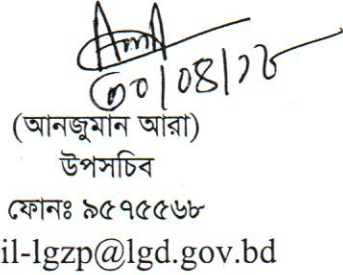 ৩০/০৪/১৮
(আনজুমান আরা)
উপসচিব
ফোনঃ ৯৫৭৫৫৬৮
il-lgzp@lgd.gov.bd